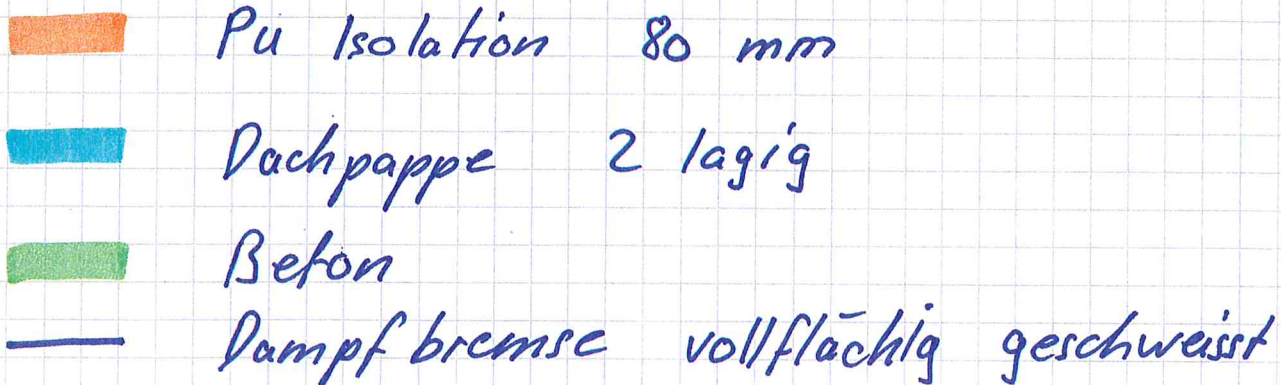 Pu Isolation 80 mm
Dachpappe 2 lagig
Beton
Dampfbremse vollflächig geschweisst